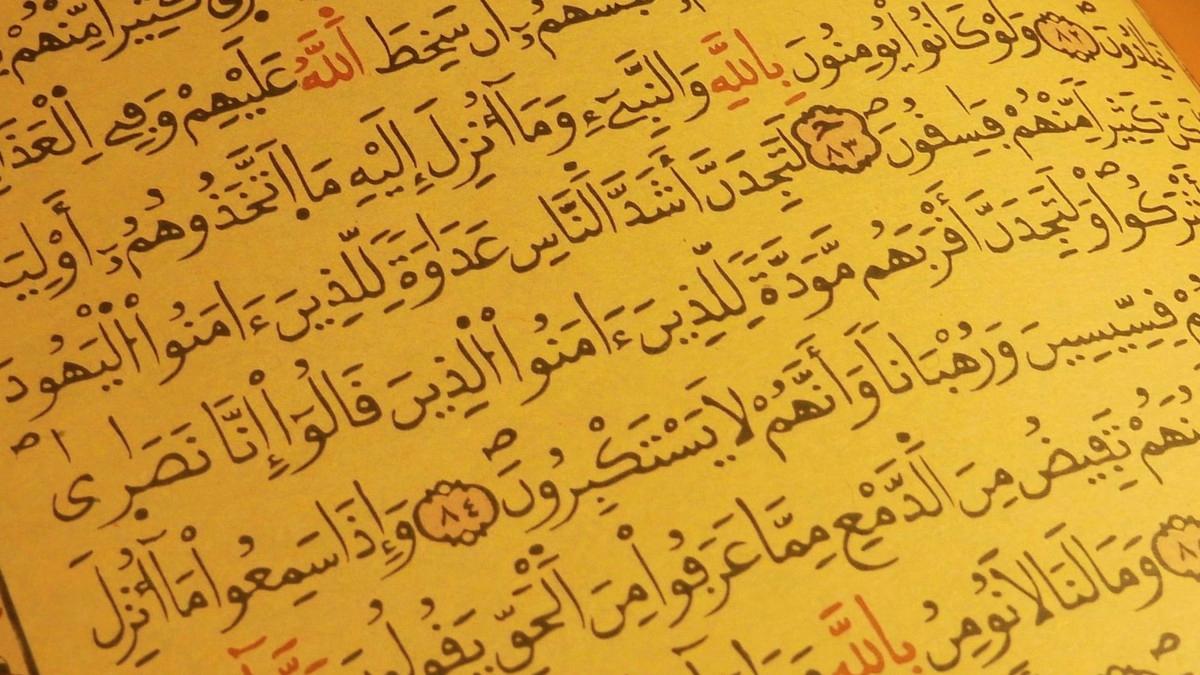 كَثِيرًا مِّنْهُمْ
أَن سَخِطَ اَللَّهُ عَلَيْهِمْ وَفِے اِلْعَذَا
خَٰلِدُونَ ٨٢ وَلَوْ كَانُوا يُومِنُونَ بِاللَّهِ وَالنَّبِےٓءِ وَمَآ أُنزِلَ إِلَيْهِ مَا اَتَّخَذُوهُمُۥٓ أَوْلِيَا
كَثِيرًا مِّنْهُمْ فَٰسِقُونَ ٨٣ لَتَجِدَنَّ أَشَدَّ اَلنَّاسِ عَدَٰوَةً لِّلذِينَ ءَامَنُوا اُ۬لْيَهُودَ
أَشْرَكُوا وَلَتَجِدَنَّ أَقْرَبَهُم مَّوَدَّةً لِّلذِينَ ءَامَنُوا اُ۬لذِينَ قَالُوٓا إِنَّا نَصَٰرَىٰ
قِسِّيسِينَ وَرُهْبَانًا وَأَنَّهُمْ لَا يَسْتَكْبِرُونَ ٨٤ وَإِذَا سَمِعُوا مَآ أُنزِلَ
تَفِيضُ مِنَ اَلدَّمْعِ مِمَّا عَرَفُوا مِنَ اَلْحَقِّ يَقُولُو
وَمَا لَنَا لَا نُومِنُ بِاللَّهِ